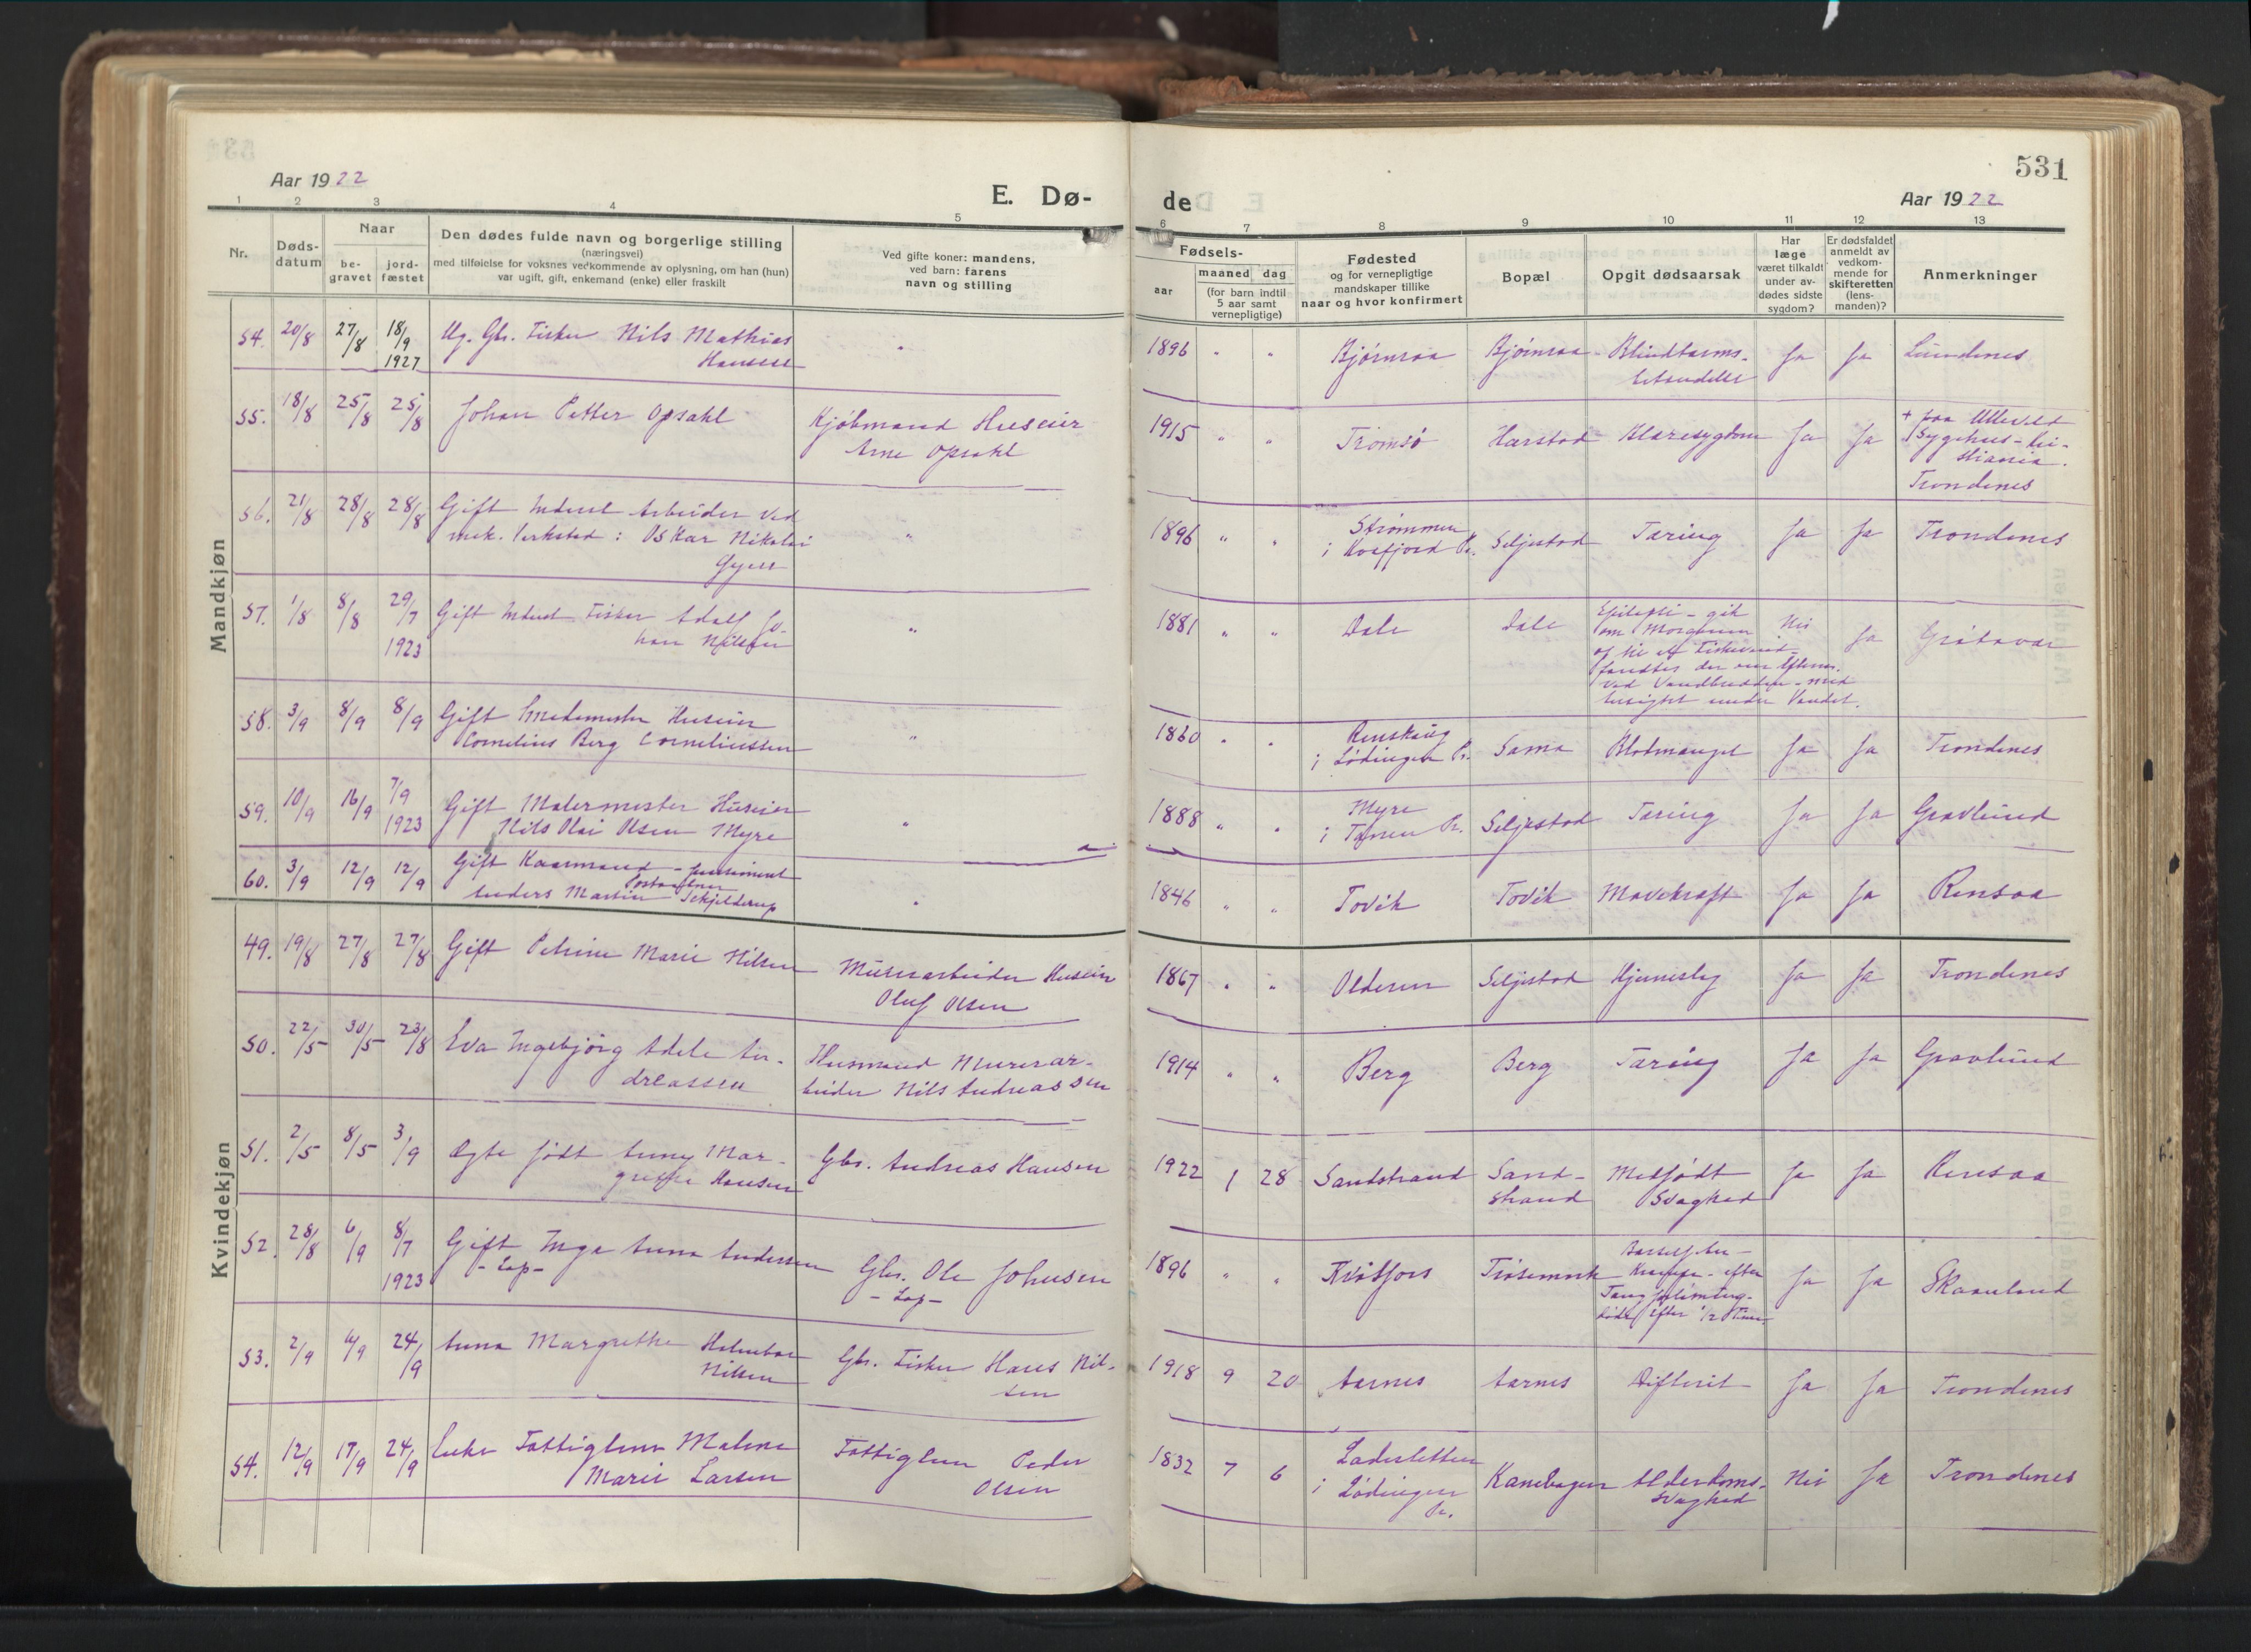 531
Aar 1922
E. Dø-
de
Aar 1922
1 2 3 4 5
6 7 8 9 10 11 12 13
Nr.
Døds-
datum
Naar
be-
gravet
jord-
fæstet
Den dødes fulde navn og borgerlige stilling
(næringsvei)
med tilføielse for voksnes vedkommende av oplysning, om han (hun)
var ugift, gift, enkemand (enke) eller fraskilt
Ved gifte koner: mandens,
ved barn: farens
navn og stilling
Fødsels-
aar
maaned dag
(for barn indtil
5 aar samt
vernepligtige)
Fødested
og for vernepligtige
mandskaper tillike
naar og hvor konfirmert
Bopæl
Opgit dødsaarsak
Har
læge
været tilkaldt
under av-
dødes sidste
sygdom?
Er dødsfaldet
anmeldt av
vedkom-
mende for
skifteretten
(lens-
manden)?
Anmerkninger
Mandkjøn
54. 20/8 27/8 18/9 Ug. Gbr. Fisker Nils Mathias " 1896 " " Bjørnraa Bjørnraa Blindtarms- Ja Ja Lundenes
1927 Hansen betændelse
55. 18/8 25/8 25/8 Johan Petter Opsahl Kjøbmand Huseier 1915 " " Tromsø Harstad Blæresygdom Ja Ja + paa Ullevold
Arne Opsahl Sygehus - Kri-
stiania.
Trondenes
56. 21/8 28/8 28/8 Gift Inderst Arbeider ved " 1896 " " Strømmen Seljestad Tæring Ja Ja Trondenes
mek. Verksted: Oskar Nikolai i Kvæfjord Pr.
57. 1/8 8/8 29/7 Gift Inderst Fisker Adolf Jo- " 1881 " " Dale Dale Epilepsi - gik Nei Ja Grøtavær
1923 han Nilsen om Morgenen
ved Vandbredden - med
under Vandet.
58. 3/9 8/9 8/9 Gift Smedemester Huseier " 1860 " " i Lødingen Pr. Sama Blodmangel Ja Ja Trondenes
Cornelius Berg Corneliussen
59. 10/9 16/9 7/9 Gift Malermester Huseier " 1888 " " Myre Seljestad Tæring Ja Ja Gravlund
1923 Nils Olai Olsen Myre i Pr.
60. 3/9 12/9 12/9 Gift Kaarmand - pensioneret " 1846 " " Tovik Tovik Mavekræft Ja Ja Rensaa
Postaabner
Anders Martin Schjelderup
Kvindekjøn
49. 19/8 27/8 27/8 Gift Petrine Marie Nilsen Murerarbeider Huseier 1867 " " Olderen Seljestad Hjerneslag Ja Ja Trondenes
Oluf Olsen
50. 22/5 30/5 23/8 Eva Ingebjørg Adele An- Husmand Murerar- 1914 " " Berg Berg Tæring Ja Ja Gravlund
dreassen beider Nils Andreassen
51. 2/5 8/5 3/9 Ægte født Anny Mar- Gbr. Andreas Hansen 1922 1 28 Sandstrand Sand- Medfødt Ja Ja Rensaa
grethe Hansen strand Svaghed
52. 28/8 6/9 8/7 Gift Inga Anna Andersen Gbr. Ole Johnsen 1896 " " Kvitfors Ja Ja Skaanland
1923 - Lap - - Lap - Krampe - efter
døde efter 1/2 Time
53. 2/9 4/9 24/9 Anna Margrethe Gbr. Fisker Hans Nil- 1918 9 20 Aarnes Aarnes Difterit Ja Ja Trondenes
Nilsen sen
54. 12/9 17/9 24/9 Enke Fattiglem Malena Fattiglem Peder 1832 7 6 Kanebogen Alderdoms- Nei Ja Trondenes
Marie Larsen Olsen i Lødingen Pr. svaghed